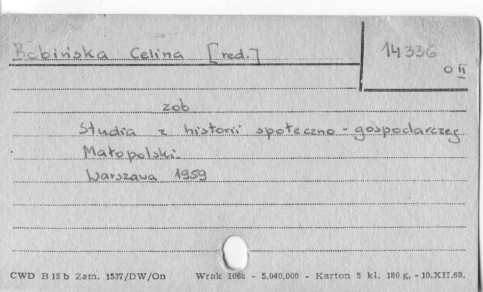 Bobińska Celina [red.]
14336
O II
zob
Studia z historii społeczno-gospodarczej
Małopolski.
Warszawa 1959
CWD B 15 b Zam. 1537/DW/On Wrak 1068 - 5.040.000 - Karton 5 kl. 180 g. - 10.XII.69.